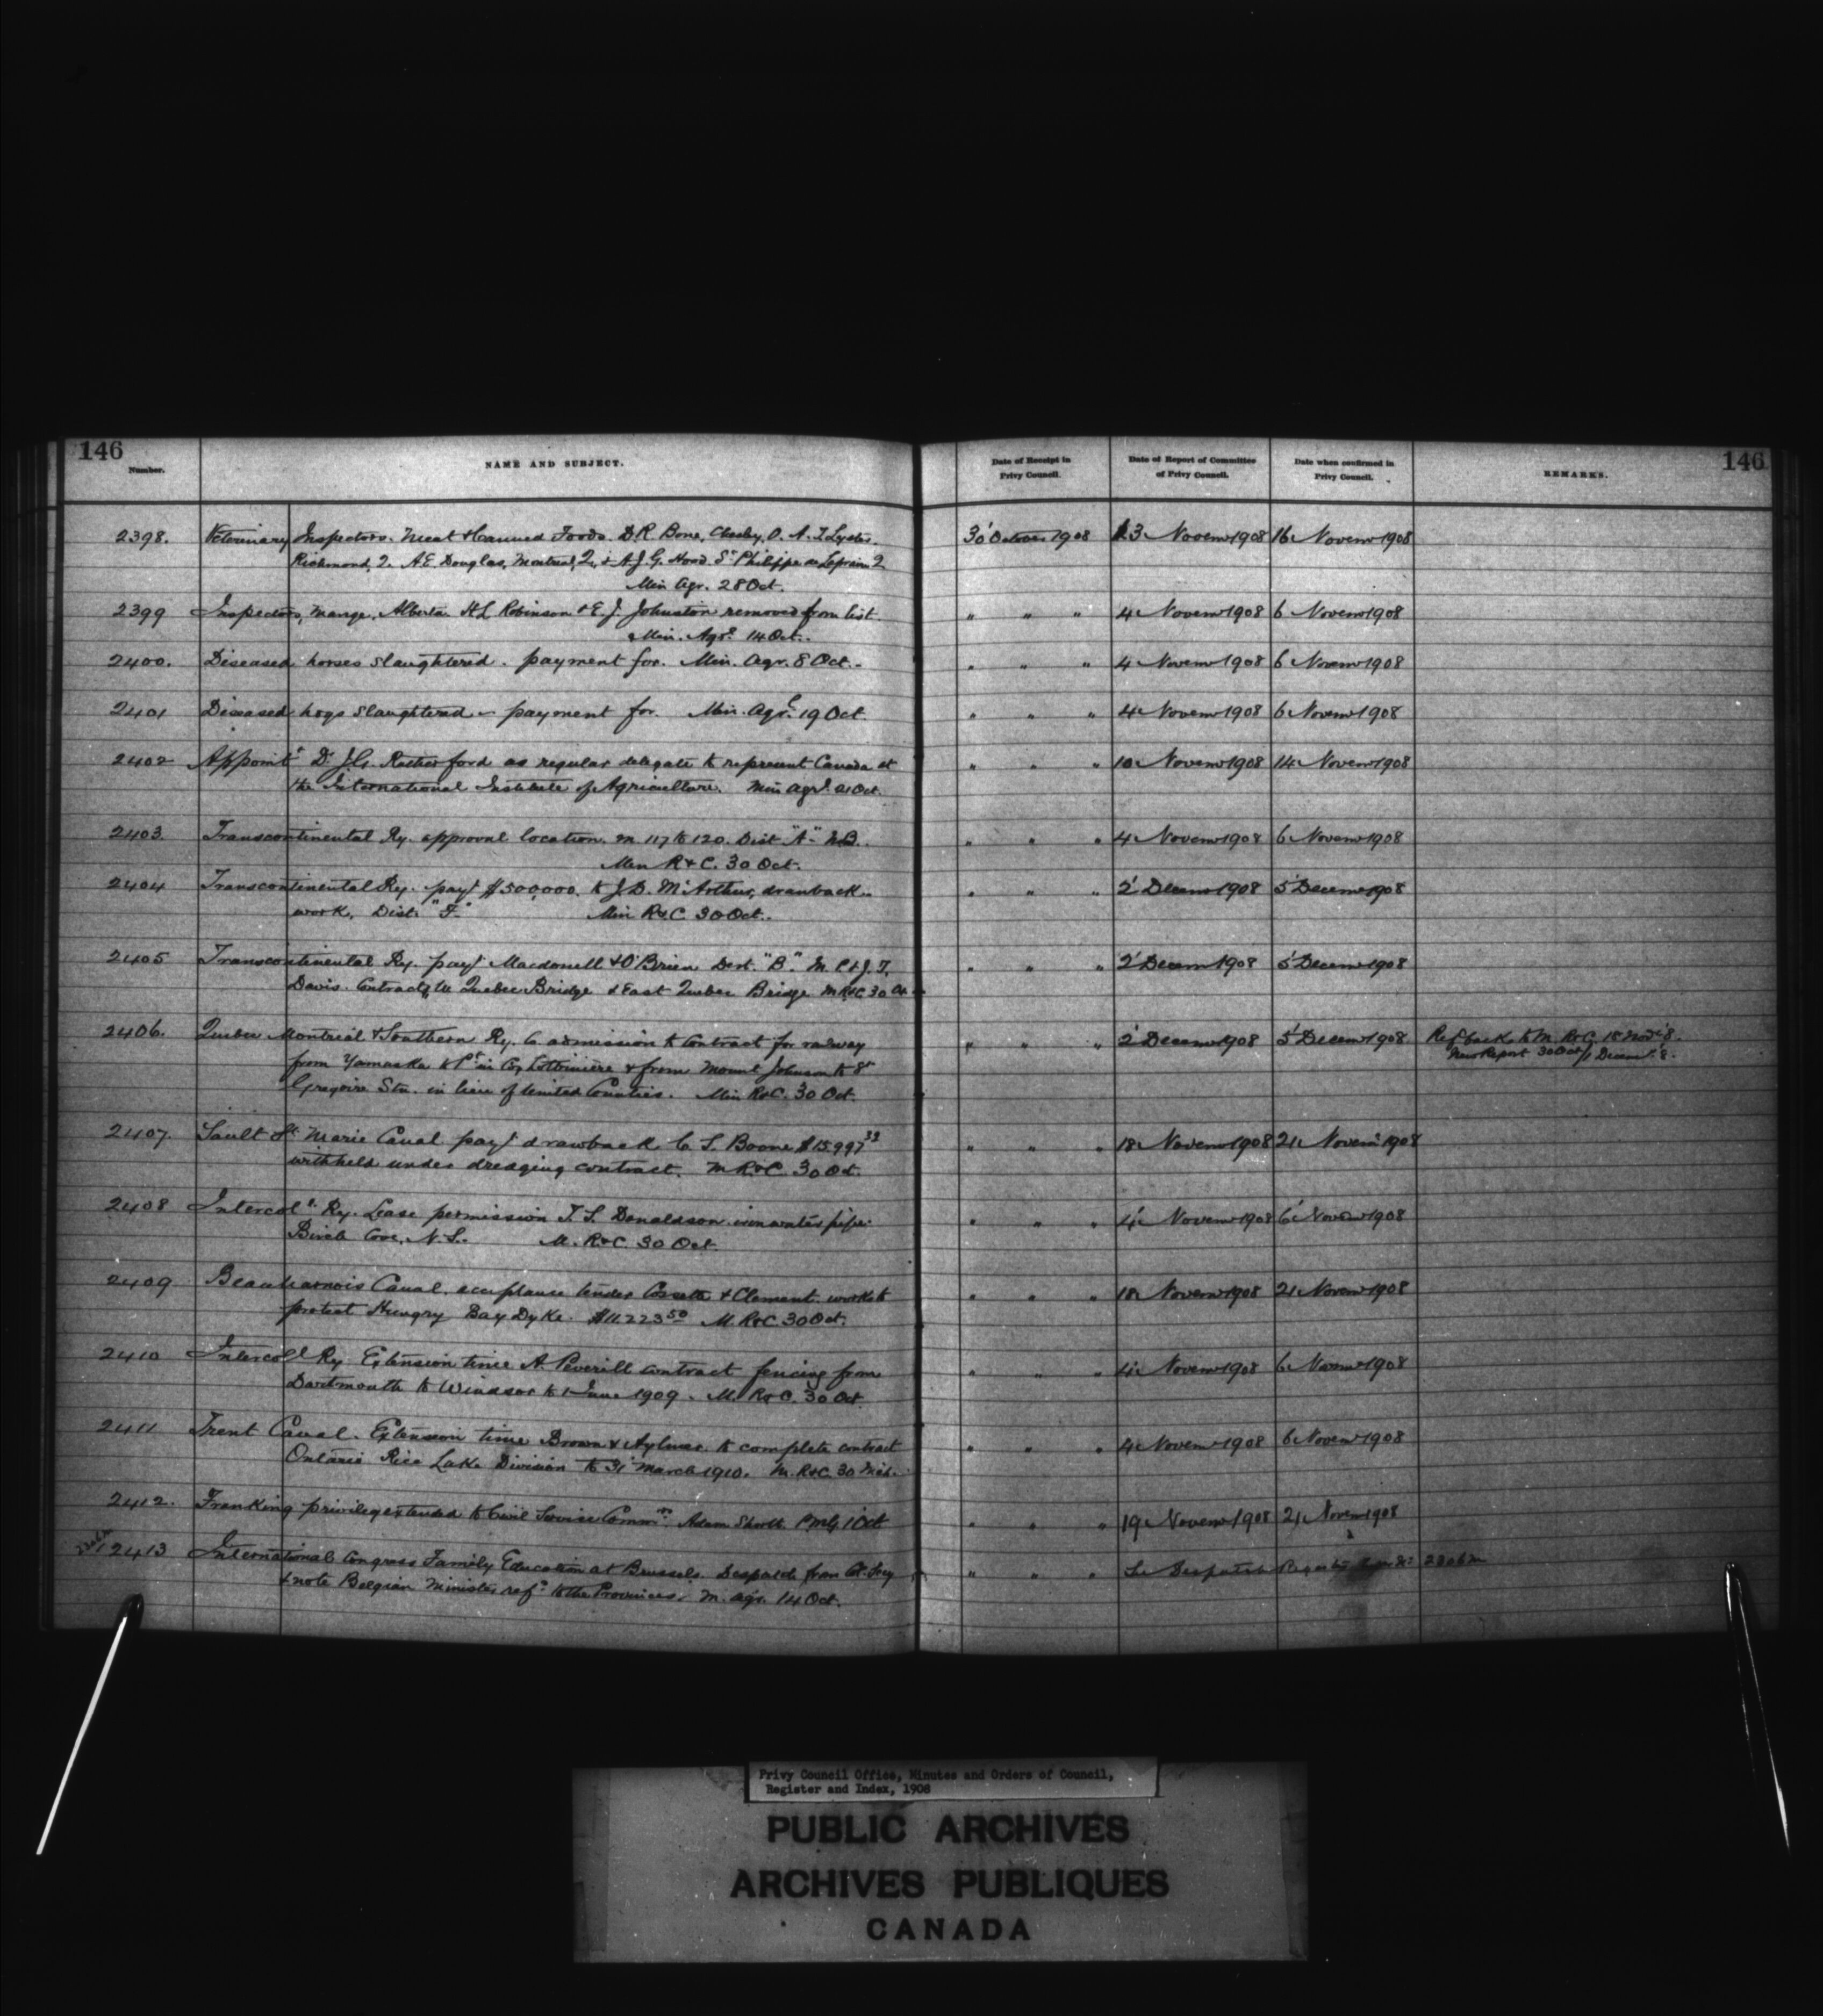 146
146
Number.
NAME AND SUBJECT.
Date of Receipt in Privy Council.
Date of Report of Committee of Privy Council.
Date when confirmed in Privy Council.
REMARKS.
2398. Veterinary Inspectors. Meat & Canned Foods. D.R. Bone, Chesley, O. A. T. Lyster. 30' October 1908 13 Novemr 1908 16 Novemr 1908
Richmond, Q. A.E. Douglas, Montreal, Q. & A.J.G. Hood St Philippe de Laprairie Q
Min Agr. 28 Oct.
2399 Inspectors, Mange, Alberta H L Robinson & E. J. Johnston removed from list. " " " 4 Novemr 1908 6 Novemr 1908
Min. Agre 14 Oct.
2400. Diseased horses slaughtered. payment for. Min. Agr. 8 Oct. " " " 4 Novemr 1908 6 Novemr 1908
2401 Diseased hogs slaughtered - payment for. Min. Agre. 19 Oct. " " " 4 Novemr 1908 6 Novemr 1908
2402 Appointt Dr J.G. Rutherford as regular delegate to represent Canada at " " " 10 Novemr 1908 14 Novemr 1908
the International Institute of Agriculture. Min Agrl 21 Oct.
2403. Transcontinental Ry. approval location. m. 117 to 120. Dist "A" N.B. " " " 4 Novemr 1908 6 Novemr 1908
Min R&C. 30 Oct.
2404 Transcontinental Ry. payt $500,000. to J.D. McArthur, drawback " " " 2' Decemr 1908 5' Decemr 1908
work, Dist. "F." Min R&C. 30 Oct.
2405 Transcontinental Ry. payt Macdonell & O'Brien Dist. "B". M. P. & J. T. " " " 2' Decemr 1908 5' Decemr 1908
Davis. Contracts W Quebec Bridge & East Quebec Bridge M R&C 30 Oct
2406. Quebec Montreal & Southern Ry. Co admission to contract for railway " " " 2' Decemr 1908 5' Decemr 1908 Refd back to M. R&C. 18 Novr '8.
from Yamaska to Pt in Co. Lotbiniere & from Mount Johnson to St New Report 30 Oct/1 Decemr '8.
Gregoire Stn. in lieu of United Counties. Min R&C. 30 Oct.
2407. Sault St Marie Canal payt drawback C. S. Boone $15,997 32 " " " 18 Novemr 1908 21 Novemr 1908
withheld under dredging contract. M R&C. 30 Oct.
2408 Intercoll. Ry. Lease permission T. S. Donaldson iron water pipe " " " 4 Novemr 1908 6 Novemr 1908
Birch Cove, N.S. M. R&C. 30 Oct.
2409 Beauharnois Canal. acceptance tender & Clement. works to " " " 18 Novemr 1908 21 Novemr 1908
protect Hungry Bay Dyke. $11,223 50 M. R&C. 30 Oct.
2410 Intercoll Ry Extension time A. Peverill contract fencing from " " " 4 Novemr 1908 6 Novemr 1908
Dartmouth to Windsor to 1 June 1909. M. R&C. 30 Oct.
2411 Trent Canal. Extension time Brown & Aylmer to complete contract " " " 4 Novemr 1908 6 Novemr 1908
Ontario Rice Lake Division to 31' March 1910. M. R&C. 30
2412. Franking privilege extended to Civil Service Commrs. Adam Shortt PMG 1 Oct " " " 19 Novemr 1908 21 Novemr 1908
2413 International Congress Family Education at Brussels. Despatch from Col. Secy " " " Despatch Register 2306
& note Belgian Minister refd to the Provinces. M. Agr. 14 Oct.
Privy Council Office, Minutes and Orders of Council,
Register and Index, 1908
PUBLIC ARCHIVES
ARCHIVES PUBLIQUES
CANADA